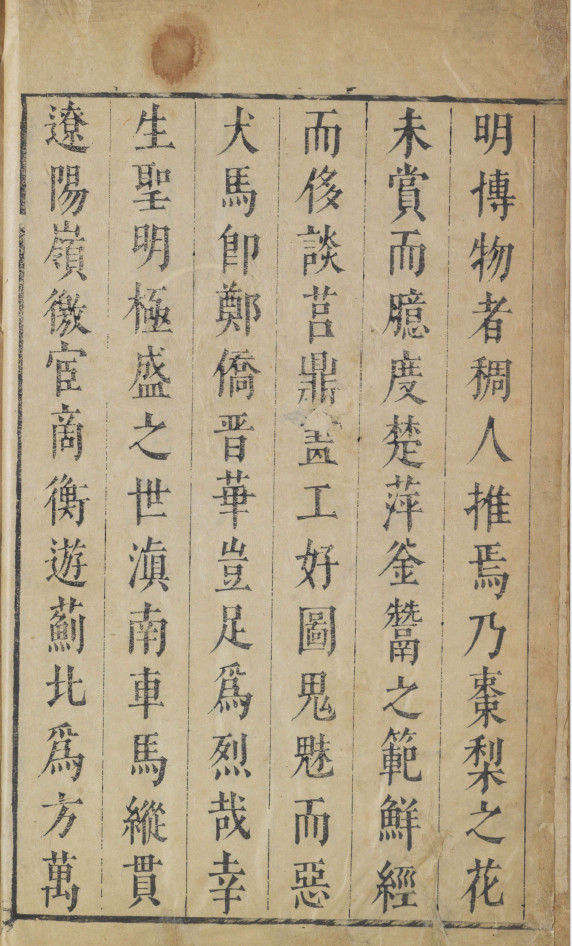 明博物者稠人推焉乃棗梨之花
未賞而臆度楚萍釡鬵之範鮮經
而侈談莒鼎畫工好圖鬼魅而惡
犬馬卽鄭僑晋華豈足爲烈哉幸
生聖明極盛之世滇南車馬縱貫
遼陽嶺徼宦商衡遊薊北爲方萬